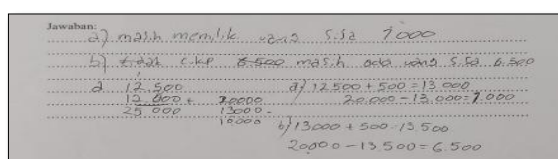 Jawaban:
a) masih memilik uang sisa 7000
b) tidak ckp 6.500 masih ada uang sisa 6.500
a 12.500 a) 12.500 + 500 = 13.000
12.500 + 20000 20.000 - 13.000 = 7.000
25 000 13000 -
10000 b) 13000 + 500 = 13 500
20000 - 13.500 = 6.500